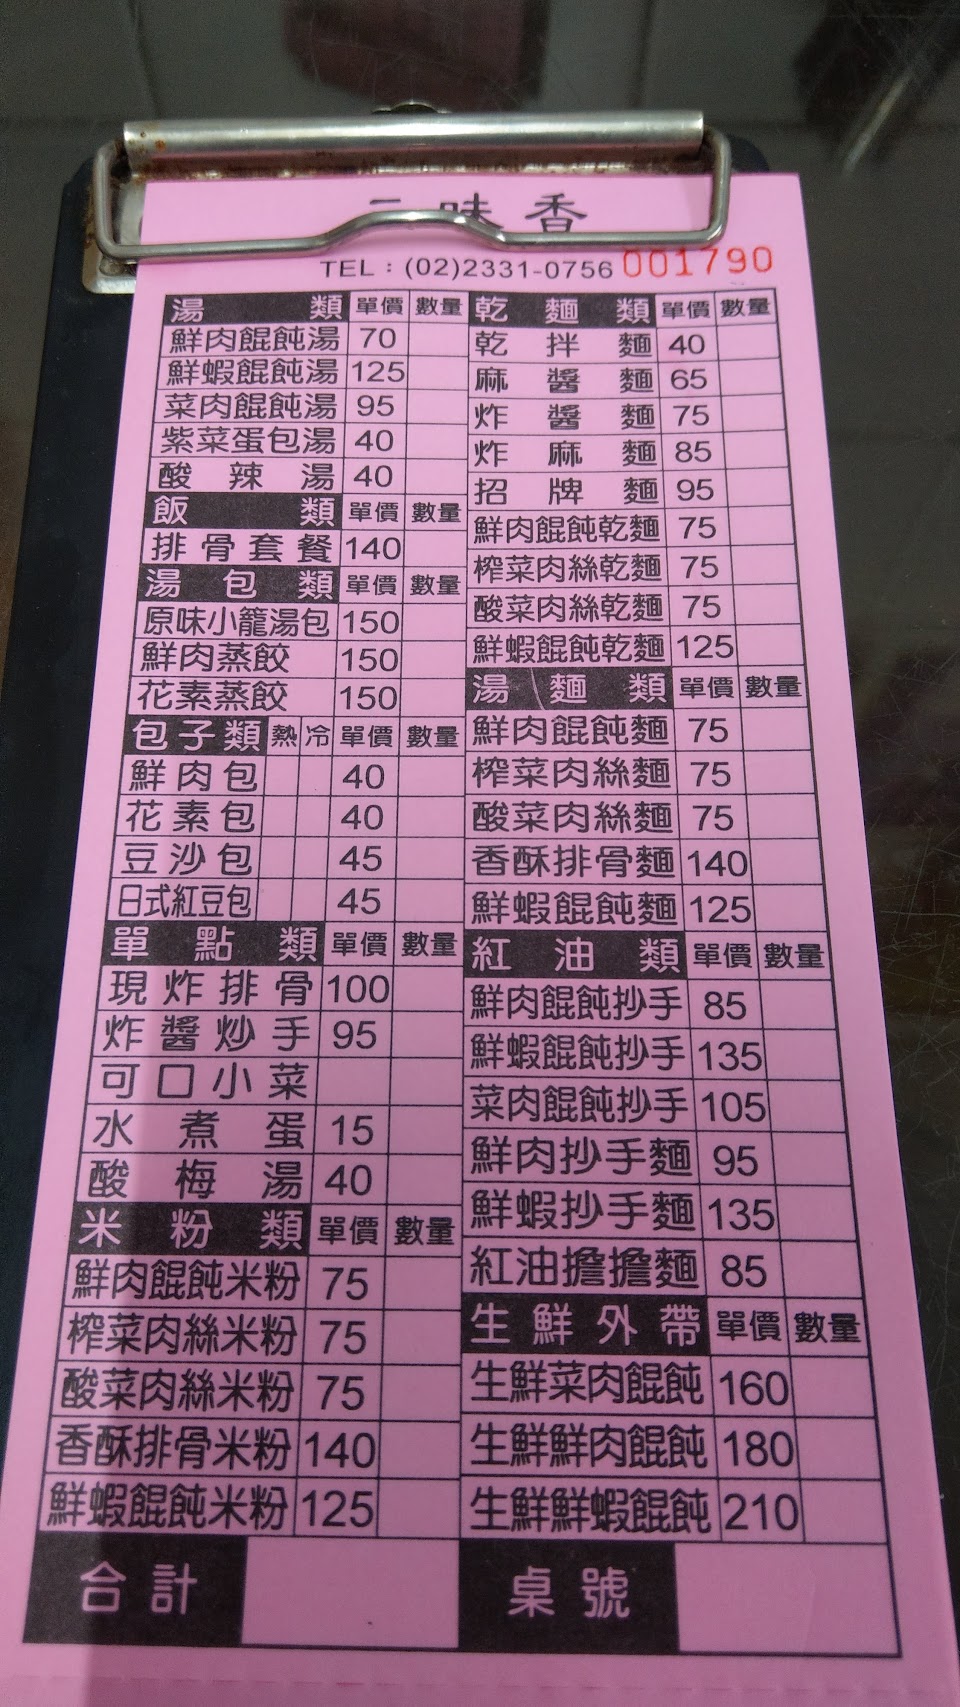 味香
TEL：(02)2331-0756 001790
湯類 單價 數量
鮮肉餛飩湯 70
鮮蝦餛飩湯 125
菜肉餛飩湯 95
紫菜蛋包湯 40
酸辣湯 40
飯類 單價 數量
排骨套餐 140
湯包類 單價 數量
原味小籠湯包 150
鮮肉蒸餃 150
花素蒸餃 150
包子類 熱 冷 單價 數量
鮮肉包 40
花素包 40
豆沙包 45
日式紅豆包 45
單點類 單價 數量
現炸排骨 100
炸醬炒手 95
可口小菜
水煮蛋 15
酸梅湯 40
米粉類 單價 數量
鮮肉餛飩米粉 75
榨菜肉絲米粉 75
酸菜肉絲米粉 75
香酥排骨米粉 140
鮮蝦餛飩米粉 125
乾麵類 單價 數量
乾拌麵 40
麻醬麵 65
炸醬麵 75
炸麻麵 85
招牌麵 95
鮮肉餛飩乾麵 75
榨菜肉絲乾麵 75
酸菜肉絲乾麵 75
鮮蝦餛飩乾麵 125
湯麵類 單價 數量
鮮肉餛飩麵 75
榨菜肉絲麵 75
酸菜肉絲麵 75
香酥排骨麵 140
鮮蝦餛飩麵 125
紅油類 單價 數量
鮮肉餛飩抄手 85
鮮蝦餛飩抄手 135
菜肉餛飩抄手 105
鮮肉抄手麵 95
鮮蝦抄手麵 135
紅油擔擔麵 85
生鮮外帶 單價 數量
生鮮菜肉餛飩 160
生鮮鮮肉餛飩 180
生鮮鮮蝦餛飩 210
合計 桌號